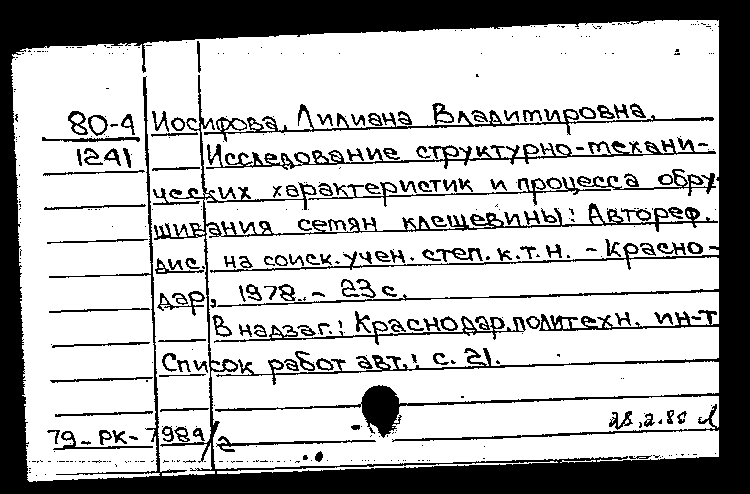 80-4 Иосифова, Лилиана Владимировна.
1241 Исследование структурно-механи-
ческих характеристик и процесса обру-
шивания семян клещевины: Автореф.
дис. на соиск. учен. степ. к.т.н. - Красно-
дар, 1978. - 23 с.
В надзаг.: Краснодар. политехн. ин-т
Список работ авт.: с. 21.
28.2.80
79-РК-7989/а